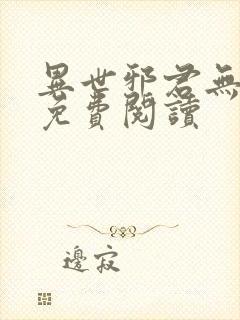 異世邪君無
免費閱讀
邊寂